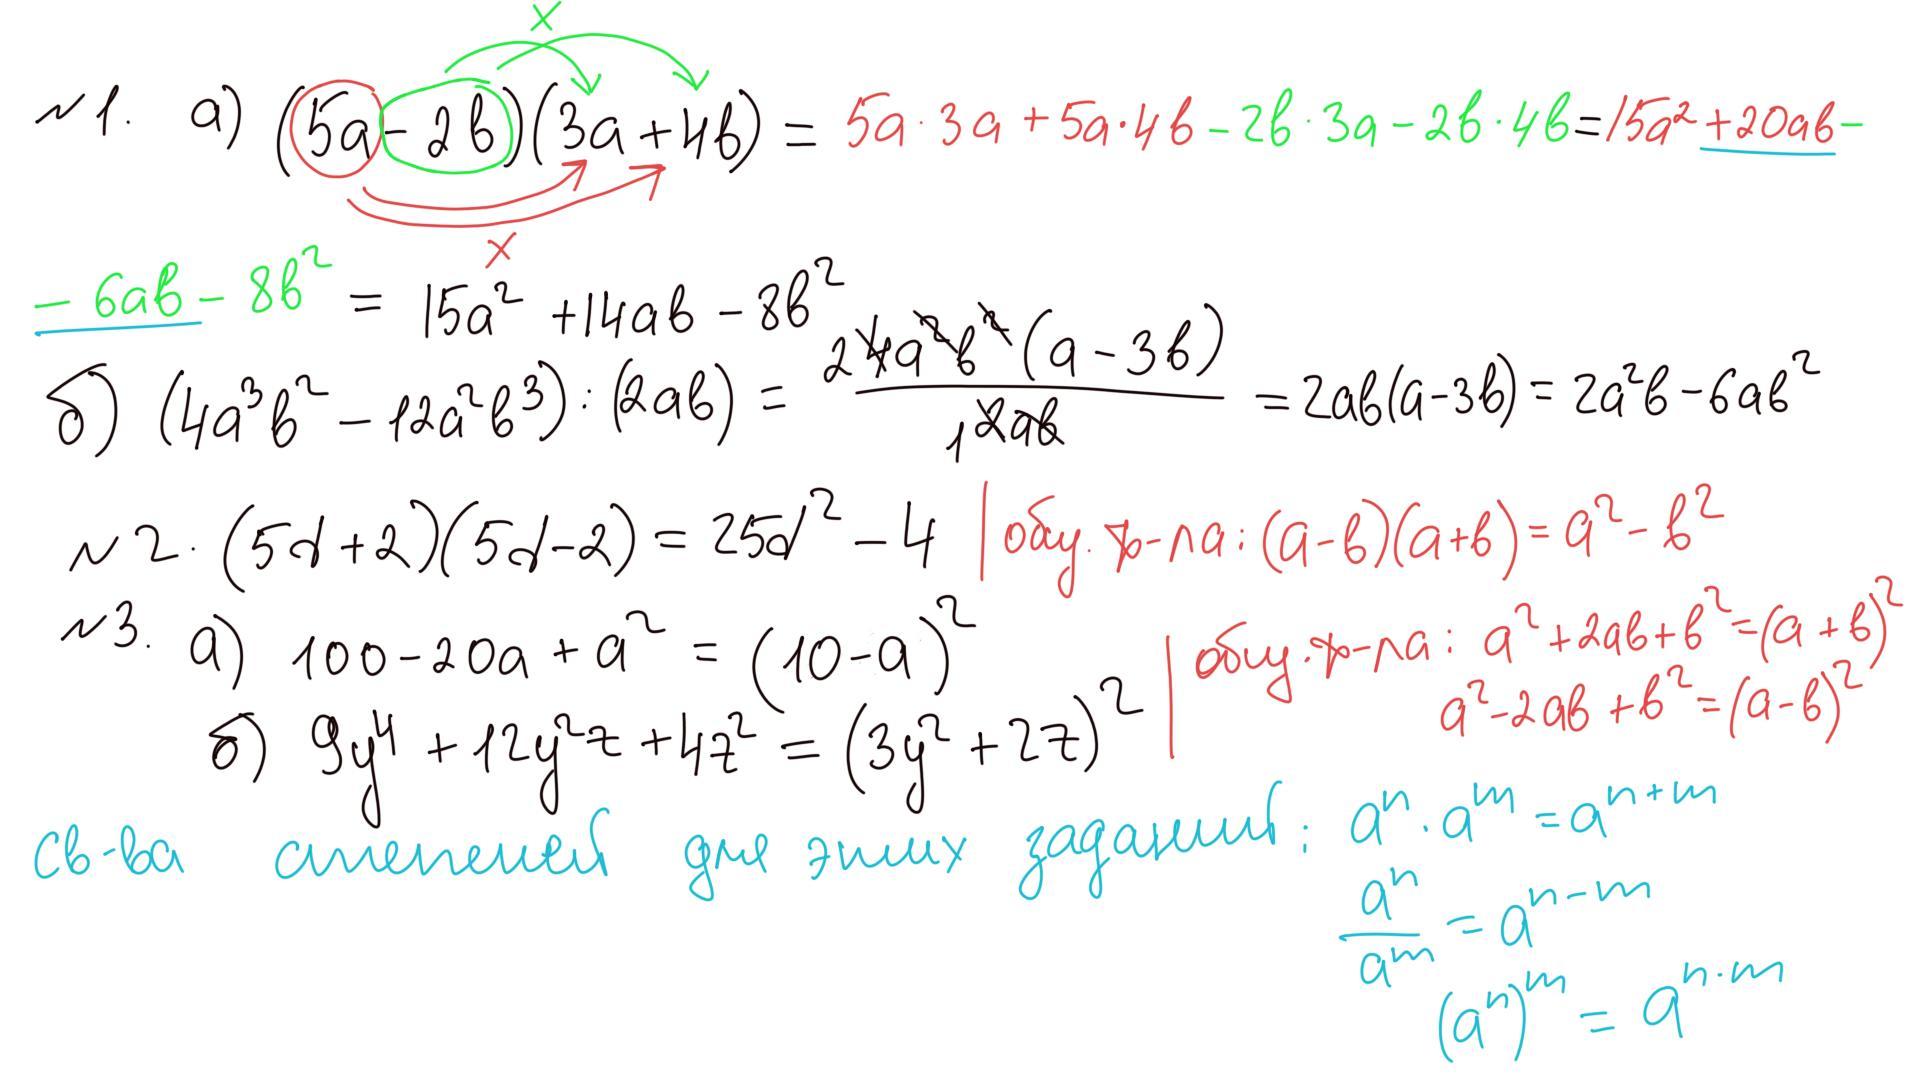 N1. а) (5a-2b)(3a+4b) = 5a·3a+5a·4b-2b·3a-2b·4b=15a²+20ab-
-6ab-8b² = 15a²+14ab-8b²
б) (4a³b²-12a²b³):(2ab) = 2 4a²b²(a-3b) / 1 2ab = 2ab(a-3b) = 2a²b-6ab²
N2. (5d+2)(5d-2) = 25d²-4 | общ. ф-ла: (a-b)(a+b) = a²-b²
N3. а) 100-20a+a² = (10-a)² | общ. ф-ла: a²+2ab+b²=(a+b)²
a²-2ab+b²=(a-b)²
б) 9y⁴+12y²z+4z² = (3y²+2z)²
Св-ва степеней для этих заданий: aⁿ·aᵐ=aⁿ⁺ᵐ
aⁿ/aᵐ = aⁿ⁻ᵐ
(aⁿ)ᵐ = a^(n·m)